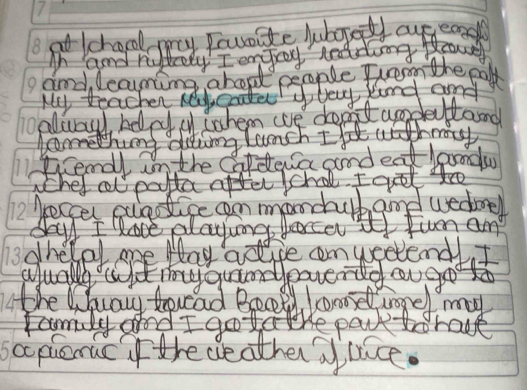 7
8 at School my Favourite Subjects are english
and history I enjoy reading Stories
9 and learning about people From the past
My teacher is very kind and
10 always helps us when we don't understand
Something during lunch I sit with my
11 friends in the cafeteria and eat
or pasta after School I go to
12 Soccer practice on mondays and wednes
days I love playing Soccer its fun an
13 d helps me Stay active on weekends I
usually visit my grandparents or go to
14 the library to read Books Sometimes my
Family and I go to the park to have
5 a picnic if the weather is nice.